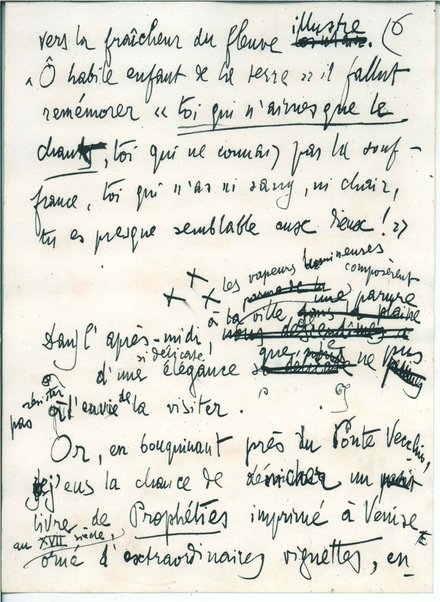 vers la fraîcheur du fleuve illustre. 6
« Ô habile enfant de la terre » il fallut
remémorer « toi qui n'aimes que le
chant, toi qui ne connais pas la souf-
france, toi qui n'as ni sang, ni chair,
tu es presque semblable aux Dieux ! »
+ + +
les vapeurs lumineuses
composèrent
une parure
à la ville
Dans l'après-midi
si délicate,
d'une élégance que nous ne pus
résister
pas à l'envie de la visiter.
Or, en bouquinant près du Ponte Vecchio,
j'eus la chance de dénicher un petit
livre de Prophéties imprimé à Venise
au XVII siècle,
orné d'extraordinaires vignettes, en